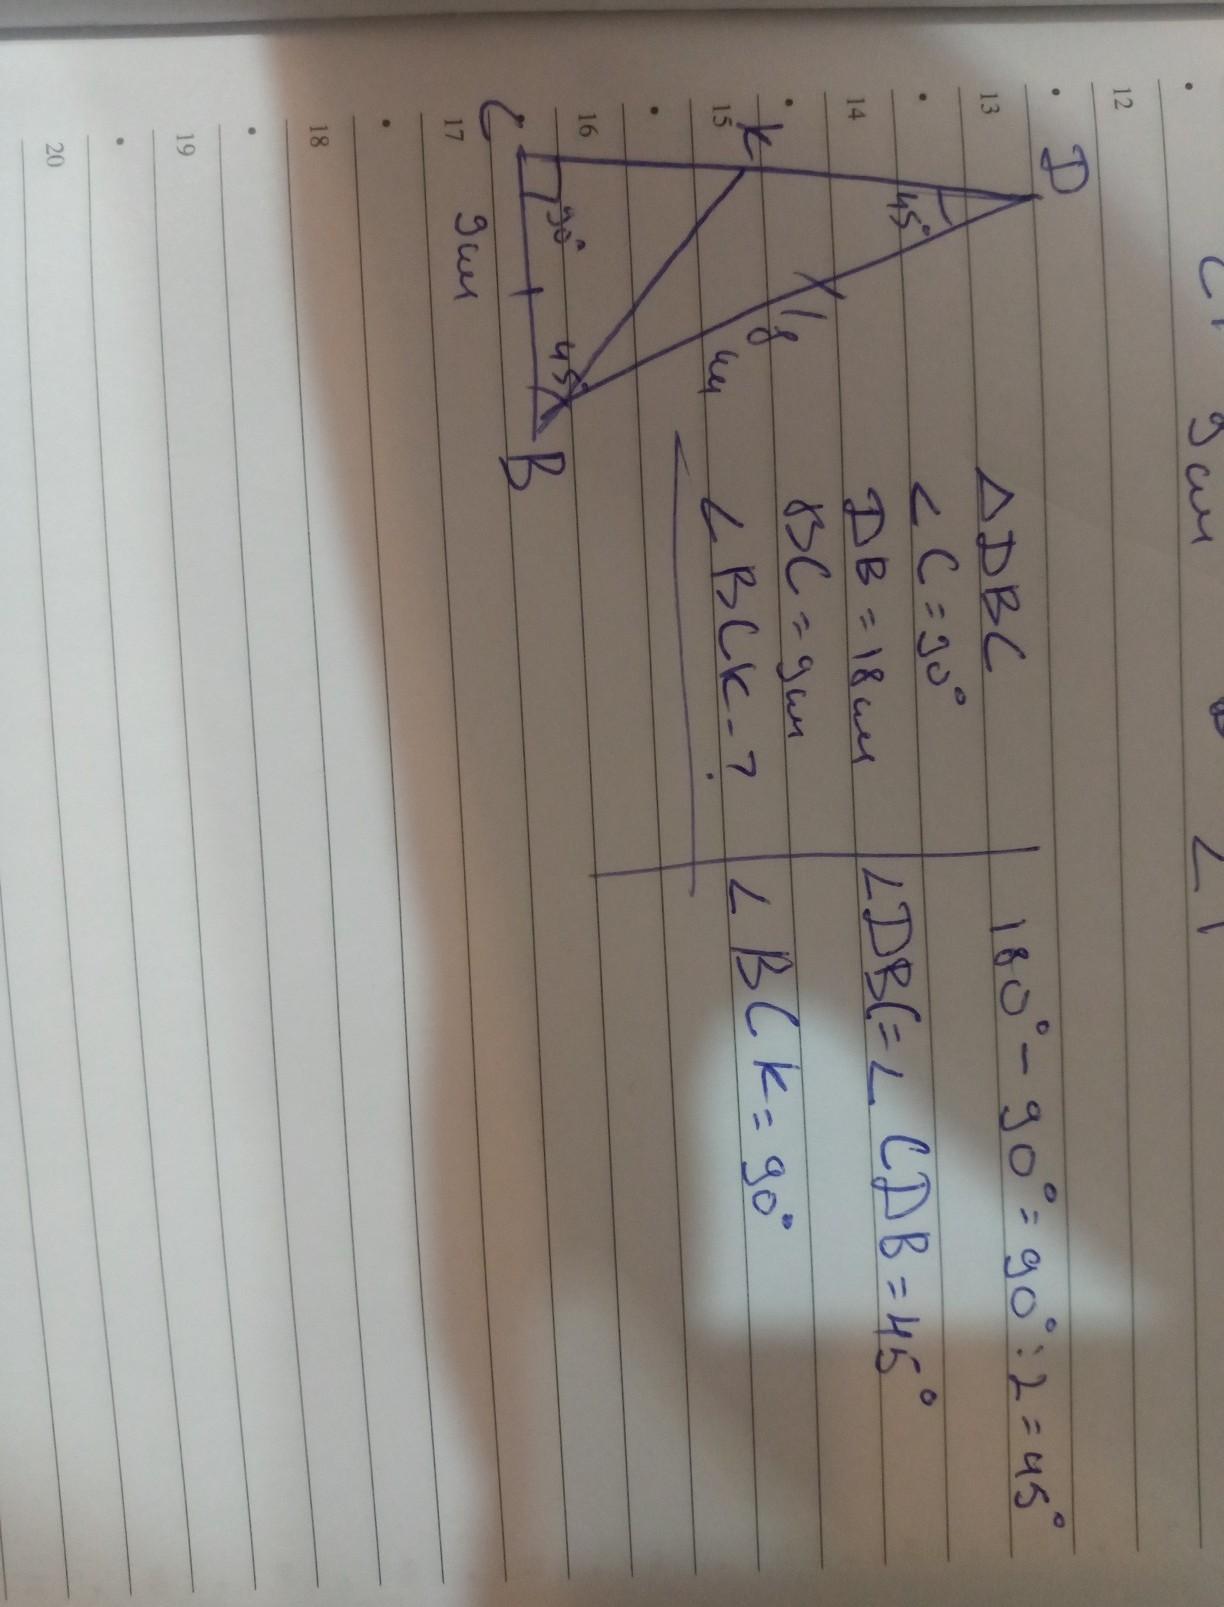 D
45°
K
18
см
C
90°
45°
B
9 см
△DBC
∠C=90°
DB=18см
BC=9см
∠BCK-?
180°-90°=90°:2=45°
∠DBC=∠CDB=45°
∠BCK=90°
9 см
12
13
14
15
16
17
18
19
20